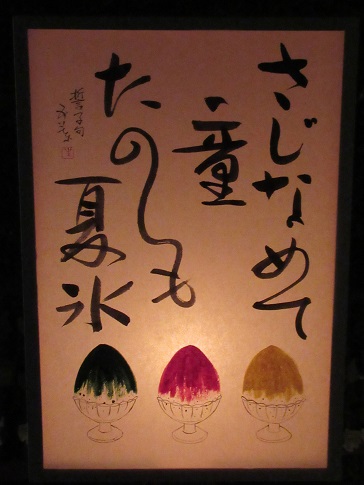 さじなめて
童
たのしも
夏氷
誓子句